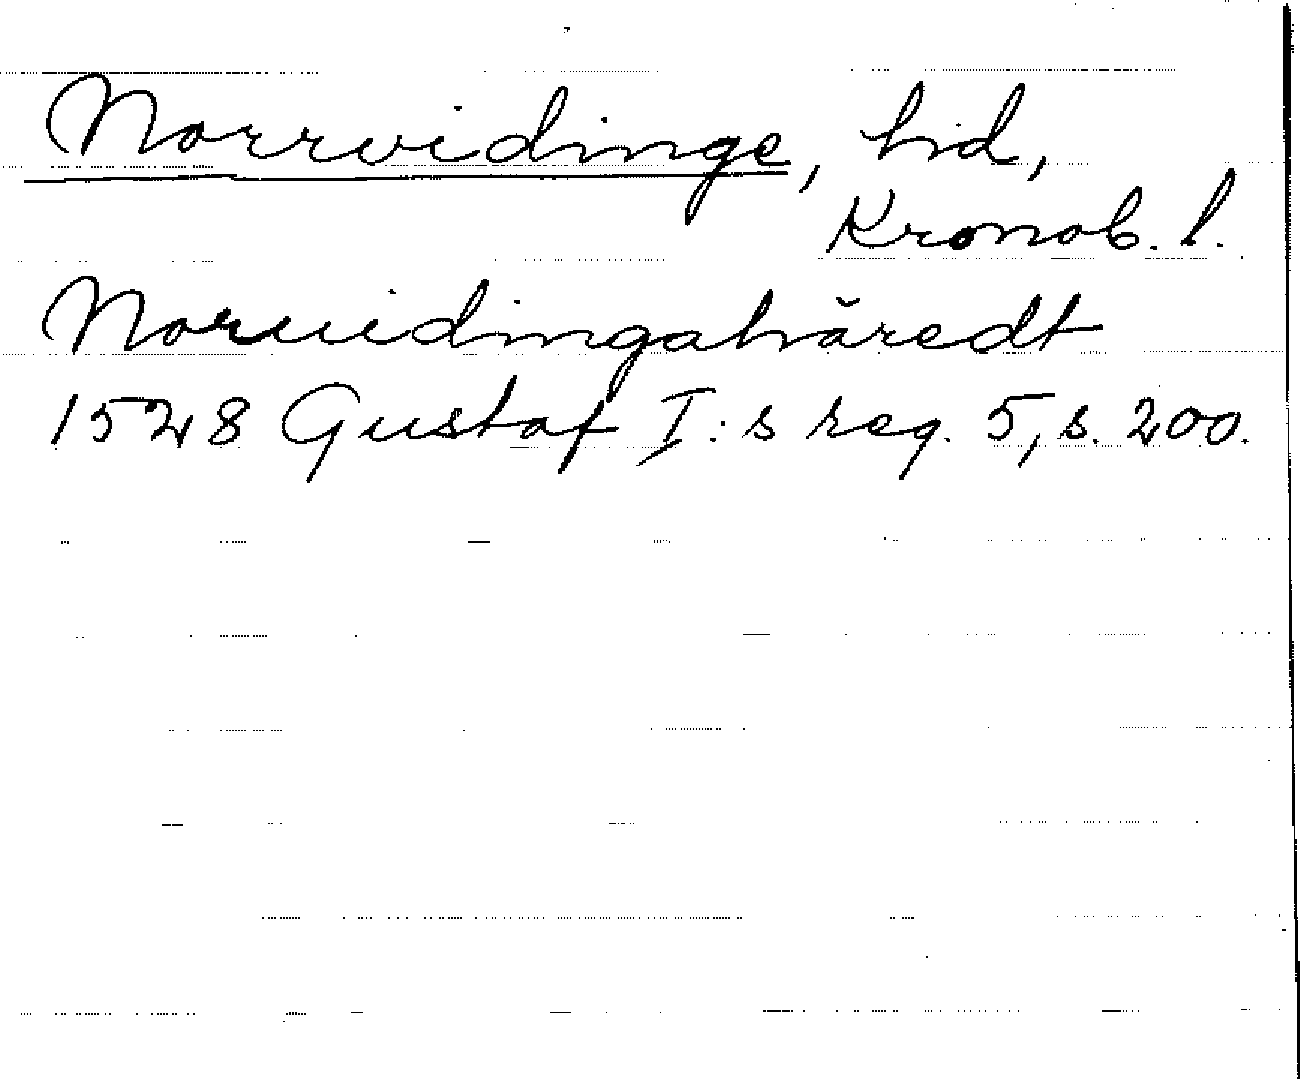 Norrvidinge, hd,
Kronob. l.
Noruidingahäredt
1528 Gustaf I:s reg. 5, s. 200.